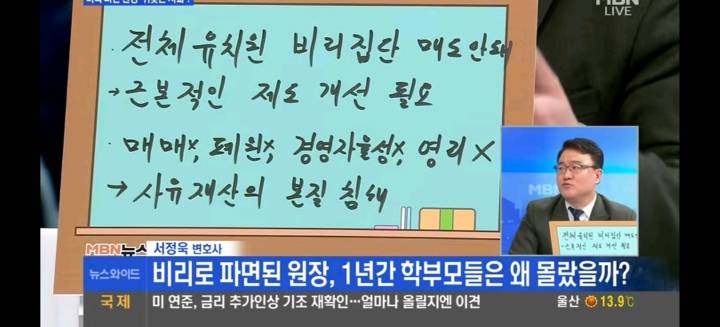 MBN
LIVE
· 전체 유치원 비리집단 매도안돼
→ 근본적인 제도 개선 필요
· 매매x, 폐원x, 경영자율성x, 영리 x
→ 사유재산의 본질 침해
MBN
전체 유치원 비리집단
→ 근본적인 제도 개선 필요
MBN뉴스 서정욱 변호사
뉴스와이드 비리로 파면된 원장, 1년간 학부모들은 왜 몰랐을까?
국 제 미 연준, 금리 추가인상 기조 재확인…얼마나 올릴지엔 이견 울산 13.9℃